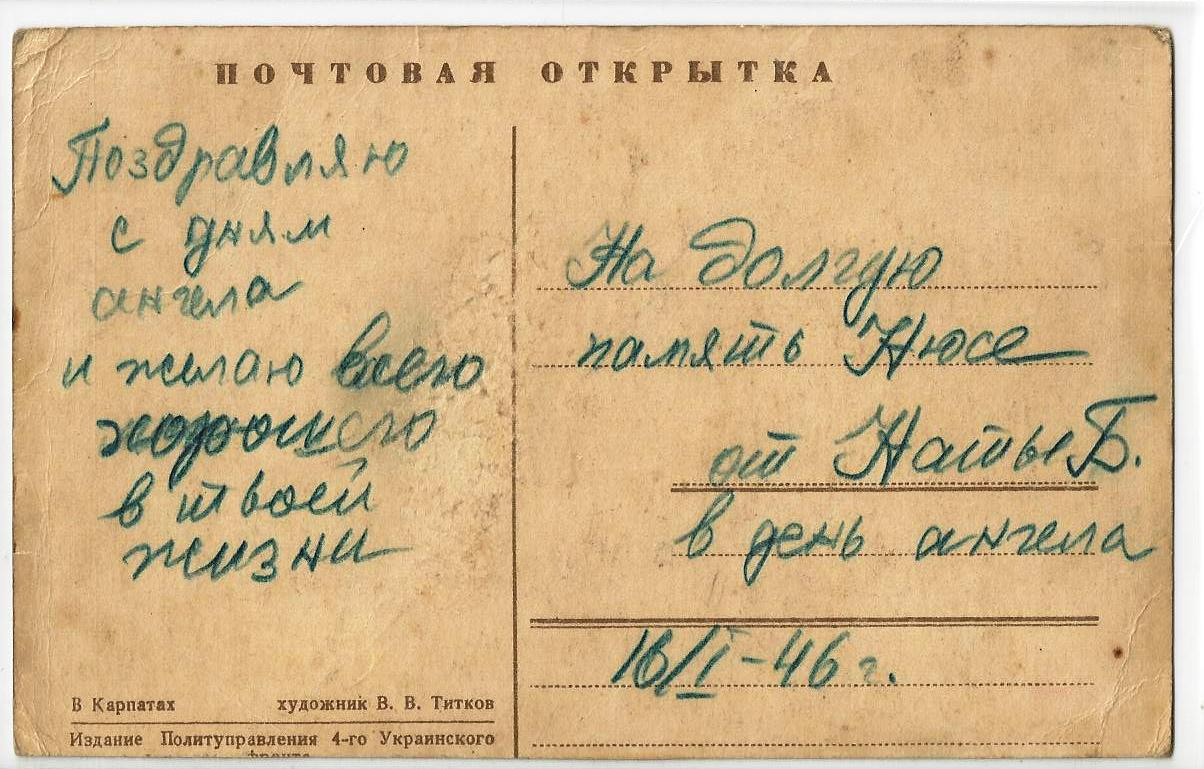 ПОЧТОВАЯ ОТКРЫТКА
Поздравляю
с дням
ангела
и желаю всего
хорошего
в твоей
жизни
В Карпатах художник В. В. Титков
Издание Политуправления 4-го Украинского
фронта
На долгую
память Нюсе
от Наты Б.
в день ангела
16/I-46 г.